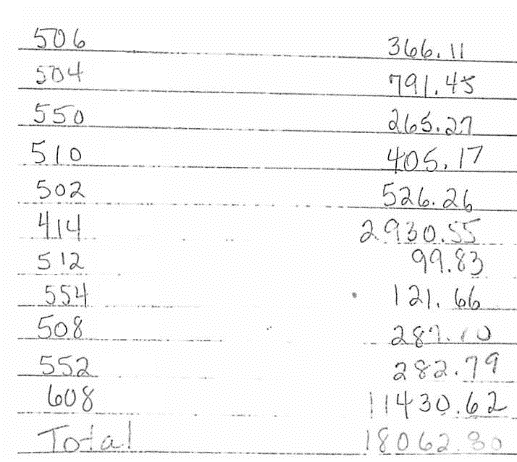 506 366.11
504 791.45
550 265.27
510 405.17
502 526.26
414 2930.55
512 99.83
554 121.66
508
552 282.79
608 11430.62
Total